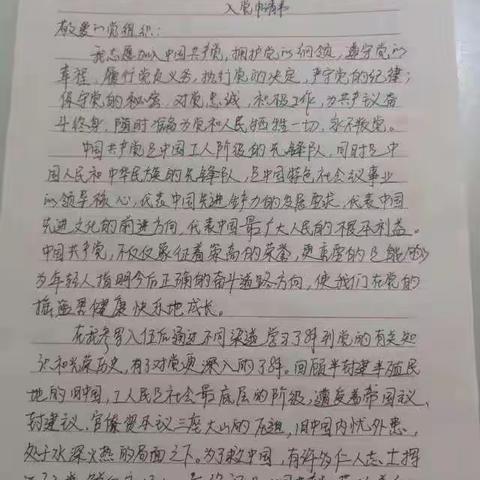 入党申请书
敬爱的党组织:
我志愿加入中国共产党,拥护党的纲领,遵守党的
章程,履行党员义务,执行党的决定,严守党的纪律;
保守党的秘密,对党忠诚,积极工作,为共产主义奋
斗终身,随时准备为党和人民牺牲一切,永不叛党。
中国共产党是中国工人阶级的先锋队,同时是中
国人民和中华民族的先锋队,是中国特色社会主义事业
的领导核心,代表中国先进生产力的发展要求,代表中国
先进文化的前进方向,代表中国最广大人民的根本利益。
中国共产党,不仅仅象征着崇高的荣誉,更重要的是能够
为年轻人指明今后正确的奋斗道路方向,使我们在党的
摇篮里健康快乐地成长。
在我参军入伍后通过不同渠道学习了解到党的有关知
识和光荣历史,有了对党更深入的了解。回顾半封建半殖民
地的旧中国,工人民是社会最底层的阶级,遭受着帝国主义、
封建主义、官僚资本主义三座大山的压迫,旧中国内忧外患,
处于水深火热的局面之下。为了救中国,有许多仁人志士探